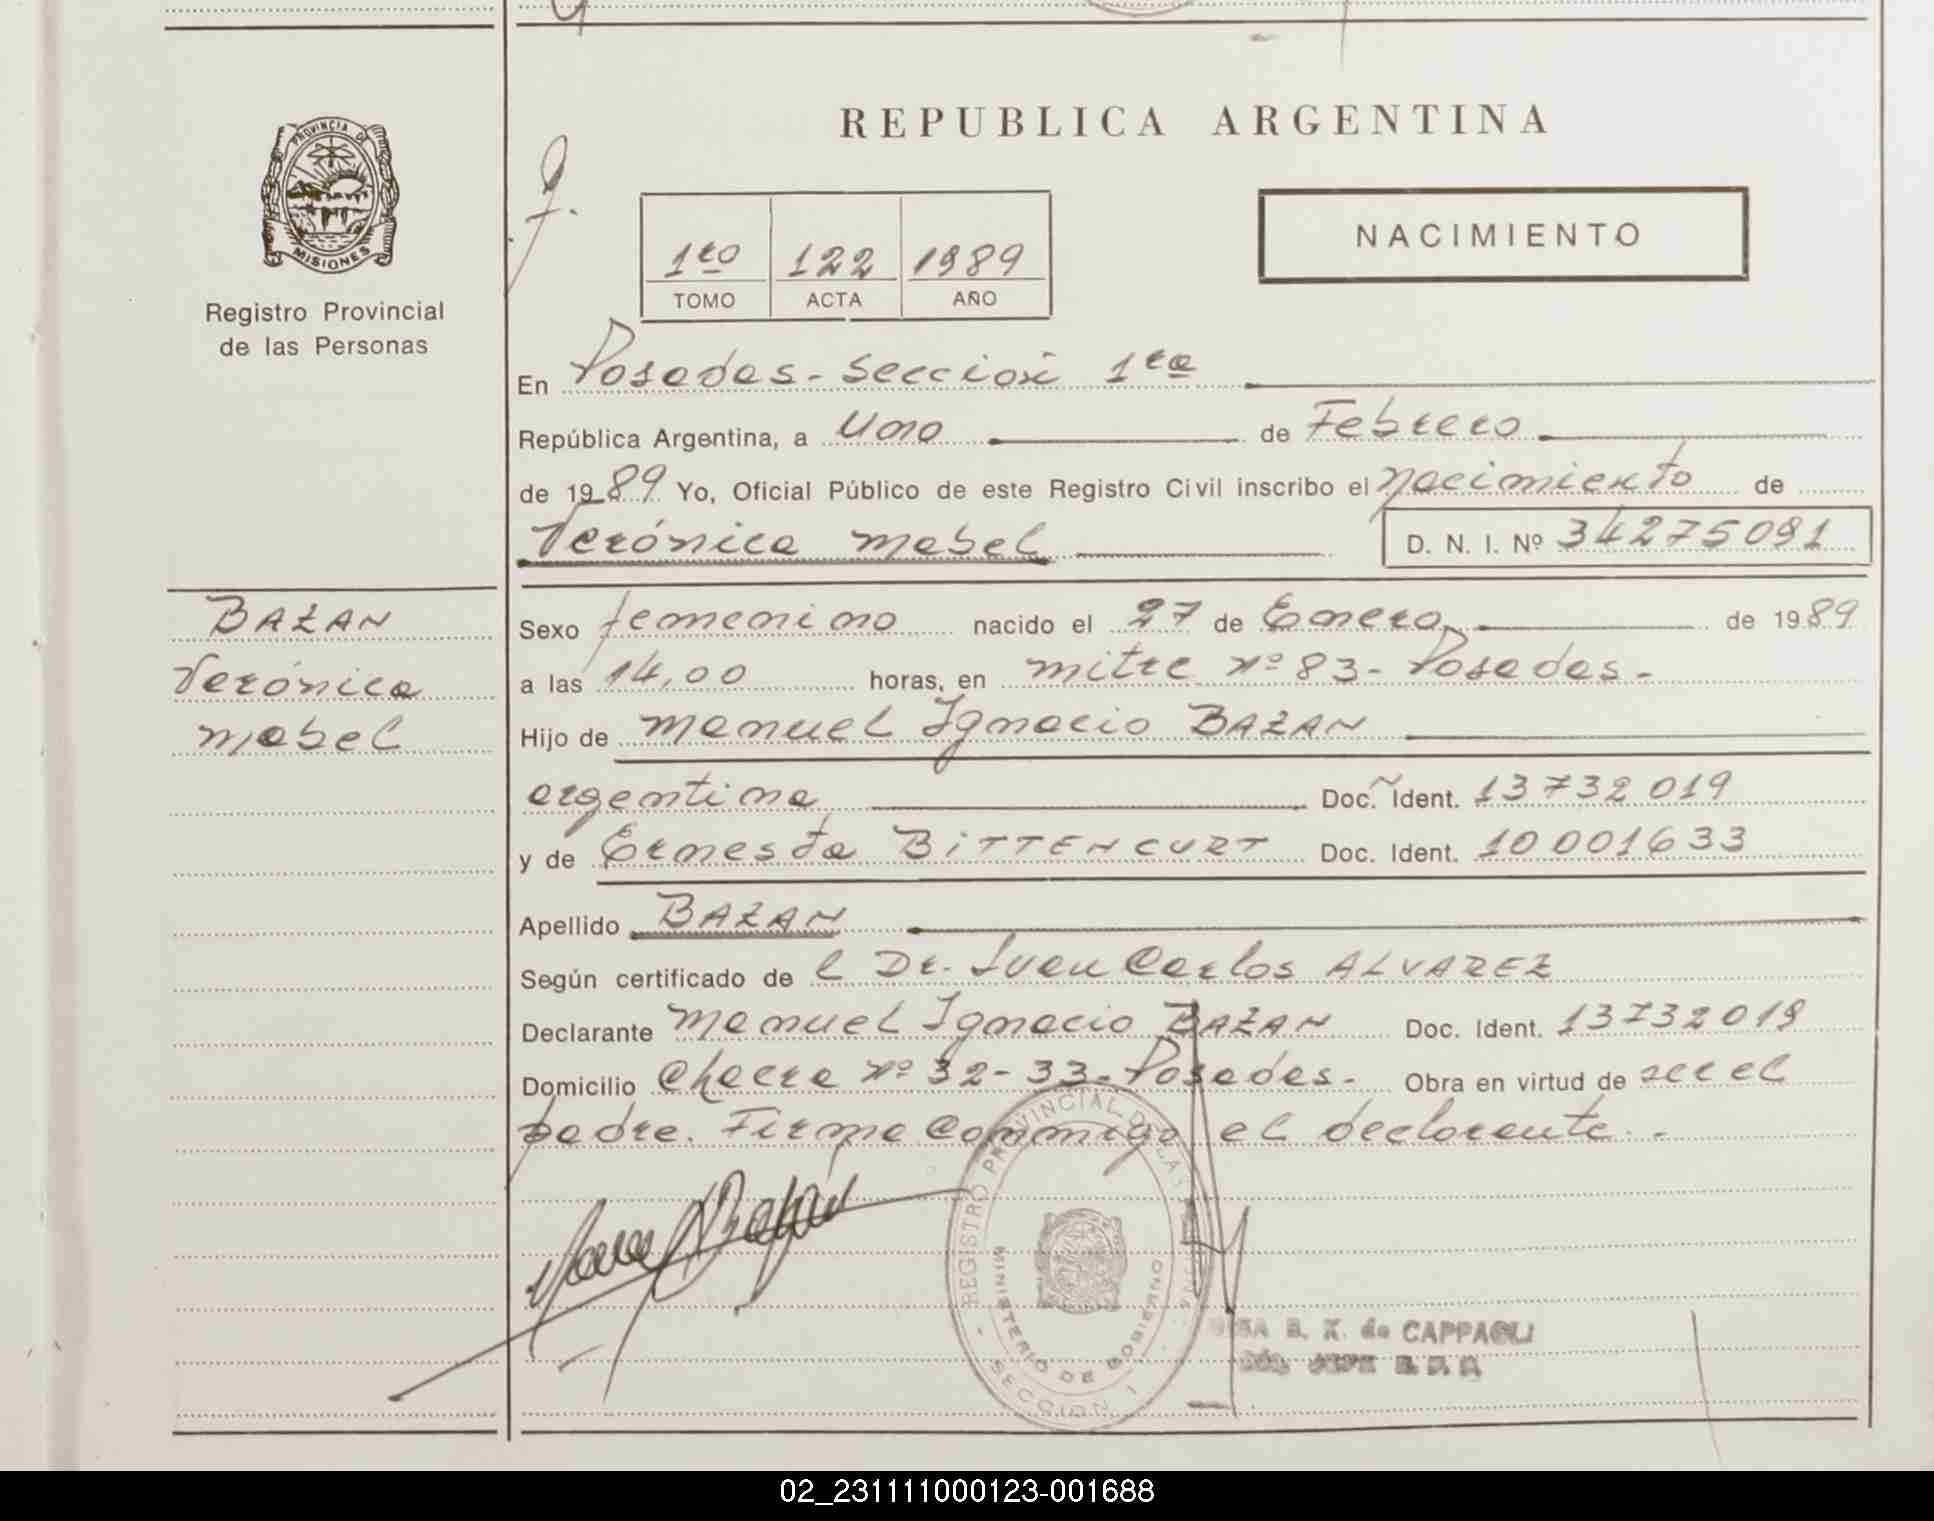 REPUBLICA ARGENTINA
PROVINCIA DE
MISIONES
Registro Provincial
de las Personas
NACIMIENTO
1ro 122 1989
TOMO ACTA AÑO
En Posadas - Sección 1ra
República Argentina, a Uno de Febrero
de 1989 Yo, Oficial Público de este Registro Civil inscribo el nacimiento de
Verónica Mabel D. N. I. Nº 34275091
BAZAN
Verónica
Mabel
Sexo femenino nacido el 27 de Enero de 1989
a las 14,00 horas, en Mitre Nº 83 - Posadas -
Hijo de Manuel Ignacio BAZAN
argentina Doc. Ident. 13732019
y de Ernesta BITTENCURT Doc. Ident. 10001633
Apellido BAZAN
Según certificado de l Dr. Juan Carlos ALVAREZ
Declarante Manuel Ignacio BAZAN Doc. Ident. 13732019
Domicilio Chacra Nº 32-33 - Posadas - Obra en virtud de ser el
padre. Firma conmigo el declarante. -
REGISTRO PROVINCIAL DE LAS
MINISTERIO DE GOBIERNO
SECCION 1
B. K. de CAPPAGLI
02_231111000123-001688